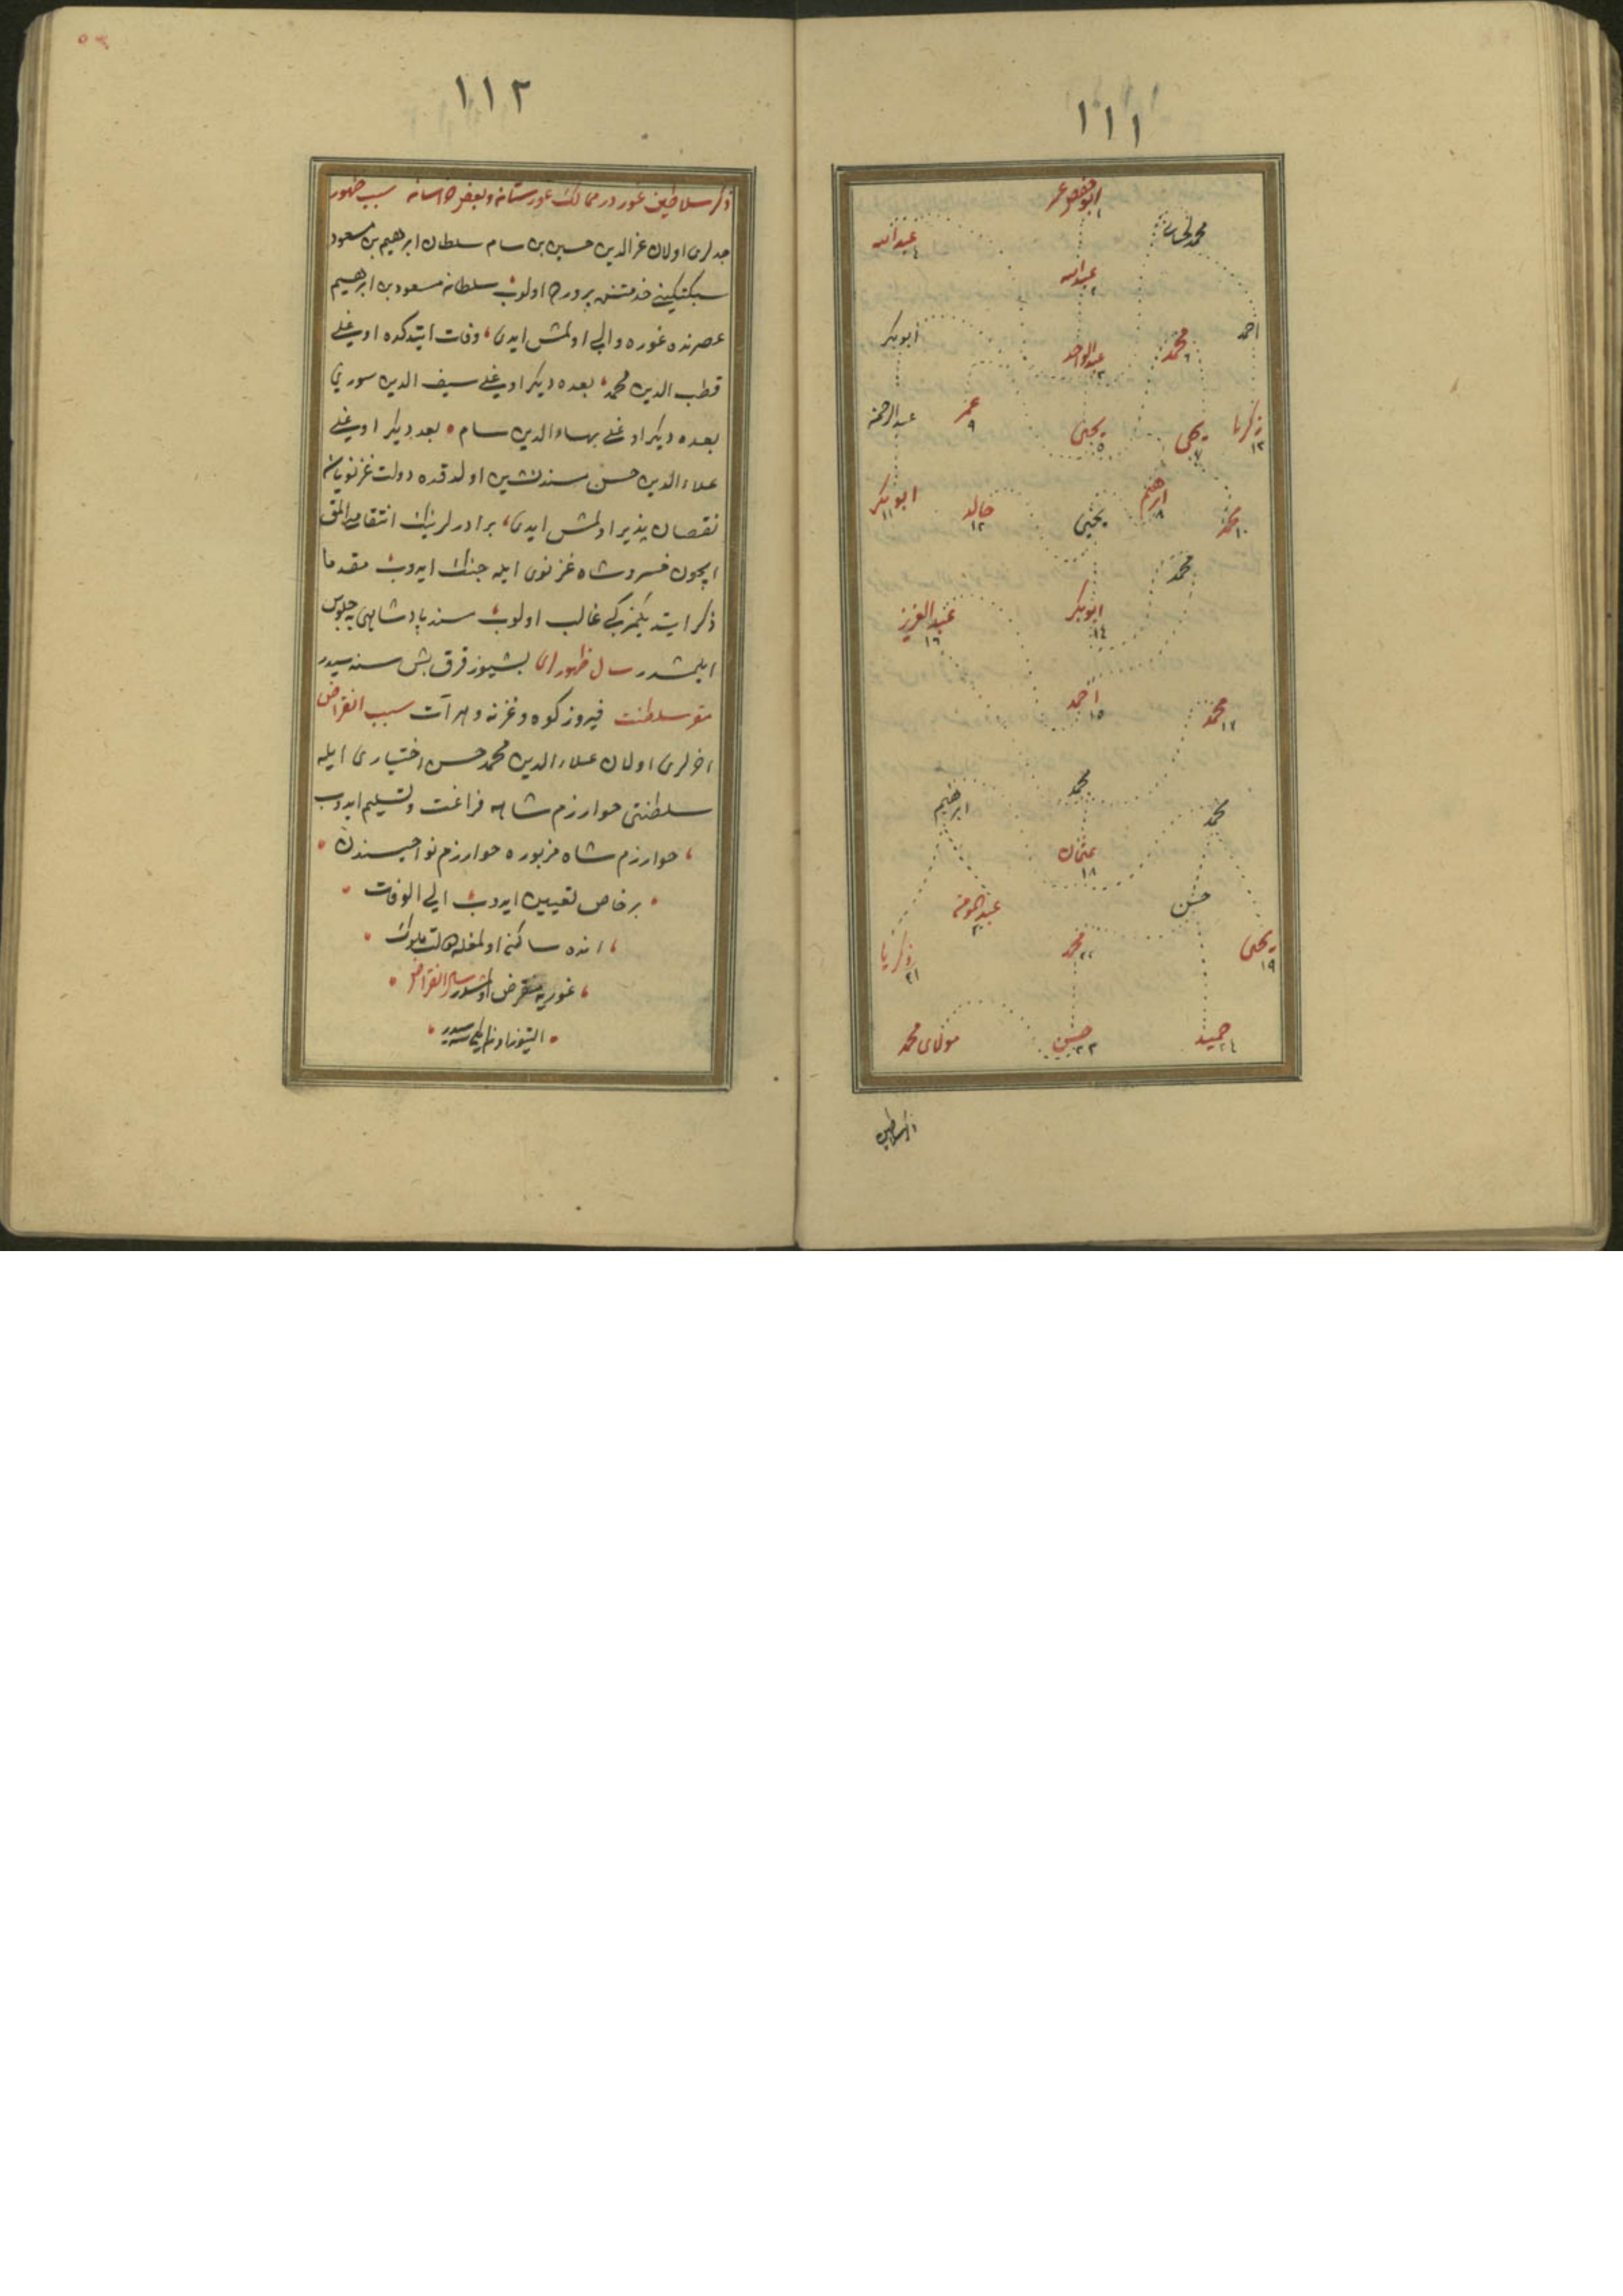 ١١١
ابوحفص عمر
١
محمد لحیانی
عبدالله
٤
عبدالله
٢
احمد
ابوبکر
محمد
٦
عبدالواحد
٣
زکریا
١٣
یحیی
٧
یحیی
٥
عمر
٩
عبدالرحمن
محمد
١٠
ابرهیم
٨
یحیی
خالد
١٢
ابوبکر
١١
محمد
ابوبکر
١٤
عبدالعزیز
١٦
محمد
١٧
احمد
١٥
محمد
محمد
ابرهیم
عثمان
١٨
حسن
عبدالمؤمن
یحیی
١٩
محمد
٢٢
زکریا
٢١
حمید
٢٤
حسن
٢٣
مولای محمد
ذکر سلاطین
١١٢
ذکر سلاطین غور در ممالک غورستان و بعض خراسان سبب ظهور
جدلری اولان عزالدین حسین بن سام سلطان ابرهیم بن مسعود
سبکتکینی خدمتنده اولوب سلطان مسعود بن ابرهیم
عصرنده غوره والی اولمش ایدی، وفات ایتدکده اوغلی
قطب الدین محمد، بعده دیکر اوغلی سیف الدین سوری
بعده دیکر اوغلی بهاءالدین سام، بعد دیکر اوغلی
علاءالدین حسن مسندنشین اولدقده دولت غزنویان
نقصان پذیر اولمش ایدی، برادرلرینک انتقامن المق
ایچون خسروشاه غزنوی ایله جنک ایدوب مقدما
ذکر ایتدیکمز کبی غالب اولوب مسند پادشاهی یه جلوس
ایلمشدر سال ظهور ان بشیوز قرق بش سنه سیدر
مقر سلطنت فیروزکوه و غزنه و هرات سبب انقراض
اخرلری اولان علاءالدین محمد حسن اختیاری ایله
سلطنتی خوارزم شاهه فراغت و تسلیم ایدوب
، خوارزم شاه مزبوره خوارزم نواحیسندن
بر خاص تعیین ایدوب الی الوفات
، انده ساکن اولمغله دولت ملوک
، غوریه منقرض اولمشدر سال انقراض
التیوز اون ایکی سنه سیدر